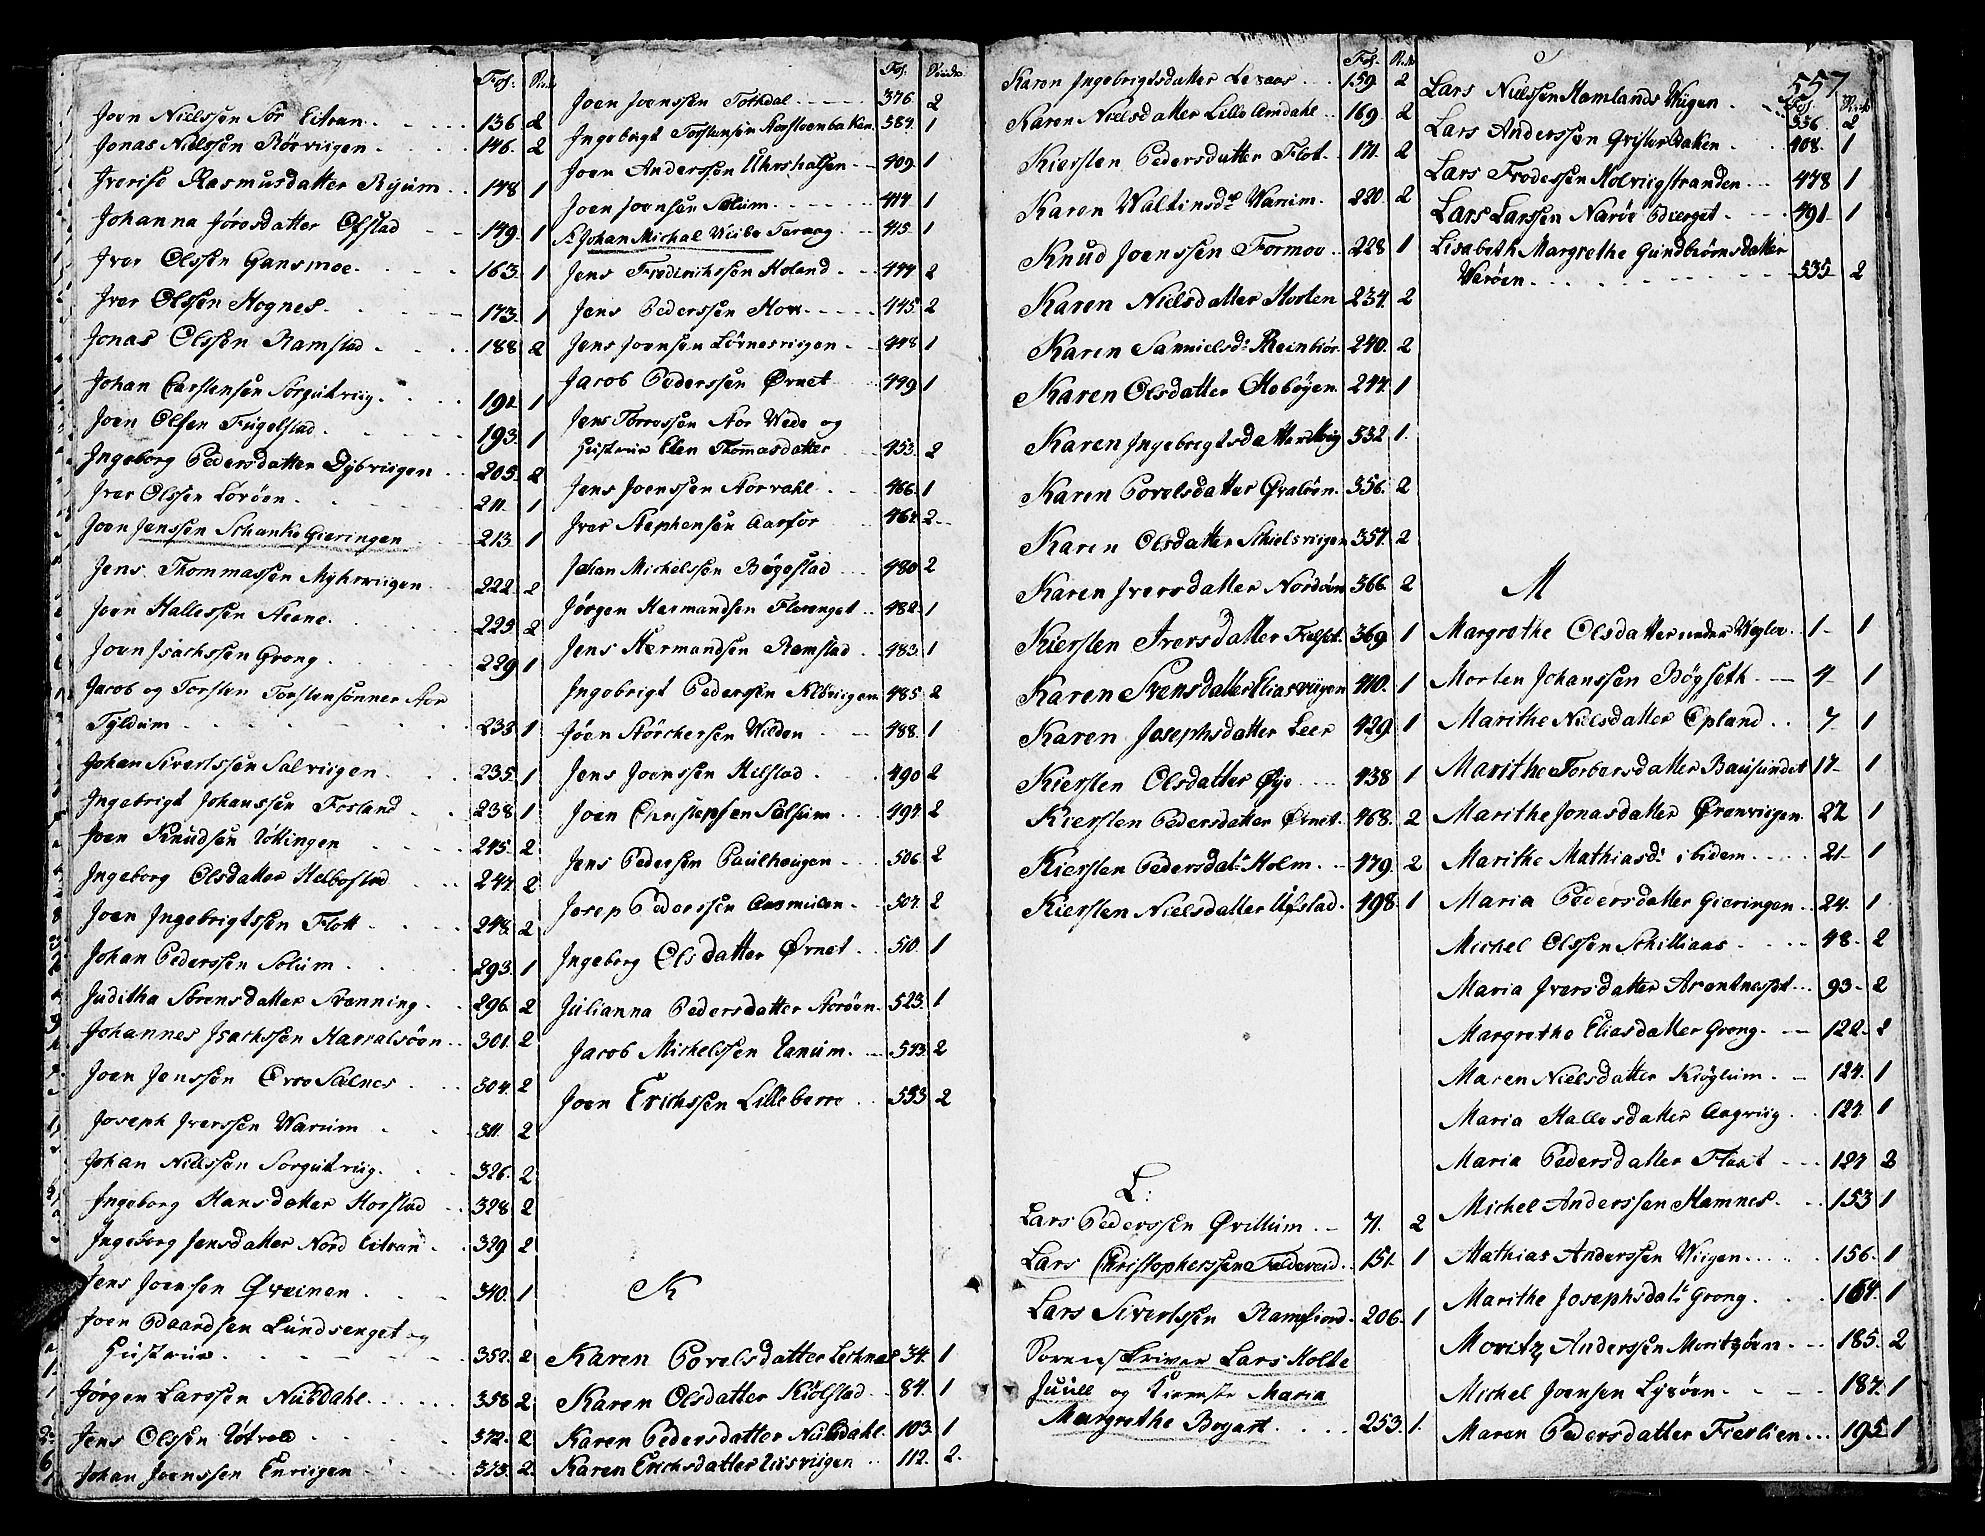 Fol: R.:
Joen Nielssen Sör Eitran 136 2
Jonas Nielssen Rörviigen 146. 2
Iverise Rasmusdatter Ryum 148 1
Johanna Jörosdatter Ofstad 149. 1
Iver Olssen Gansmoe 163. 1
Iver Olssen Hognes 173. 1
Jonas Olssen Ramstad 188 2
Johan Carstensen Sorgutviig 191 1
Joen Olsen Fugelstad 193. 1
Ingeborg Pedersdatter Dybviigen 205. 2
Iver Olssen Lövöen 211. 1
Joen Jenssen Schanke Gieringen 213. 1
Jens Thommassen Myhrviigen 222. 2
Joen Hallessen Aeene 225 2
Joen Isachssen Grong 229 1
Jacob og Torsten Torstensönner Nor
Tyldum 233 1
Johan Sivertssen Salviigen 235. 1
Ingebrigt Johanssen Fosland 238 1
Joen Knudsen Söttingen 245. 2
Ingeborg Olsdatter Helbostad 247. 2
Joen Ingebrigtssen Flott 248. 2
Johan Pederssen Solum 293. 1
Juditha Sörensdatter Svenning 296. 2
Johannes Isachssen Harralsöen 301. 2
Joen Jenssen Over Salnes 304. 2
Joseph Iverssen Warum 311. 2
Johan Nielssen Sorgutviig 326. 2
Ingeborg Hansdatter Horstad 328 2
Ingeborg Jensdatter Nord Eitran 329 2
Jens Joensen Qveinen 340. 1
Joen Baardsen Lundsenget og
Hustrue 352. 2
Jörgen Larssen Nubdahl 358 2
Jens Olssen 372. 2
Johan Joenssen Enviigen 373. 2
Fol.
Joen Joenssen Tothdal 376. 2
Ingebrigt Torstensen 384. 1
Joen Anderssen Uhrshalsen 409. 1
Joen Joensen Solum 414. 1
Sr Johan Michal Wiibe Teraag 415. 1
Jens Frederichssen Holand 444 2
Jens Pederssen Hov 445. 2
Jens Joensen Lörnesviigen 448 1
Jacob Pederssen Örnet 449 1
Jens Torressen Nor Wede og
Hustrue Elen Thomasdatter 453. 2
Jens Joenssen Norvahl 466. 1
Iver Stephensen Aarfor 467. 2
Johan Michelssen Bögestad 480 2
Jörgen Hermandsen Florenget 482. 1
Jens Hermandsen Ramstad 483. 1
Ingebrigt Pedersen Klöviigen 485. 2
Jöen Störchersen Wilden 488. 1
Jens Joenssen Helstad 490 2
Joen Christophersen Solsum 497. 2
Jens Pedersen Paulhougen 506. 2
Josep Pederssen Aasmulen 507. 2
Ingeborg Olsdatter Örnet 510. 1
Julianna Pedersdatter Noröen 523. 1
Jacob Michelssen Vanum 543 2
Joen Erichssen Lilleberre 553 2
K
Karen Povelsdatter Lechnes 34. 1
Karen Olsdatter Kiölstad 84. 1
Karen Pedersdatter Nubdahl 103. 1
Karen Erichsdatter Eidsviigen 112. 2.
Fol.
Karen Ingebrigtsdatter Lexaas 159. 2
Karen Nielsdatter Lille Amdahl 169. 2
Kiersten Pedersdatter Flot 171. 2
Karen Waltinsdr Warum 220. 2
Knud Joenssen Formoe 228 1
Karen Nielsdatter Horten 234. 2
Karen Samuelsdr Reinbiör 240. 2
Karen Olsdatter Hoböyen 244. 1
Karen Ingebrigtsdatter 332 1.
Karen Povelsdatter Qvalöen 356. 2
Karen Olsdatter Schielsviigen 357. 2
Karen Iversdatter Nordöen 366. 2
Kiersten Iversdatter 369. 1
Karen Svensdatter Eliasviigen 410. 1
Karen Josephsdatter Leer 429. 1
Kiersten Olsdatter Öye 438 1
Kiersten Pedersdatter Örnet 468. 2
Kiersten Pedersdatr Holm 479. 2
Kiersten Nielsdatter Ufstad 498. 1
L:
Lars Pederssen Qvillum 71. 2
Lars Christopherssen Faldereid 151. 1
Lars Sivertssen Ramfiord 206. 1
Sorenskriver Lars Holte
Juull og Kiereste Maria
Margrethe Bogart 253. 1.
557
Fol. R.:
Lars Nielssen Homlands Wiigen 336. 2
Lars Anderssen Qvisterbaken 408. 1
Lars Frodessen Holviigstranden 478 1
Lars Larssen Naröe 491. 1
Lisabeth Margrethe Gundbiörnsdatter
Waröen 535. 2
M
Margrethe Olsdatter under Weglov 1 1
Morten Johanssen Bögseth 4 1
Marithe Nielsdatter Opland 7 1
Marithe Torbersdatter Bausundet 17 1
Marithe Jonasdatter Örenviigen 22 1
Marithe Mathiasdr ibidem 21 1
Maria Pedersdatter Gieringen 24. 1
Michel Olssen Schilliaas 48. 2
Maria Iversdatter 93 2
Margrethe Eliasdatter Grong 122. 2
Maren Nielsdatter Kiöglum 124. 1
Maria Hallesdatter Aagviig 127 1
Maria Pedersdatter Flaat 127 2
Michel Anderssen Hamnes 153 1
Mathias Anderssen Wiigen 156. 1
Marithe Josephsdatr Grong 164. 1
Moritz Anderssen Moritzöen 185. 2
Michel Joensen Lysöen 187. 1
Maren Pedersdatter Fierlien 195 1